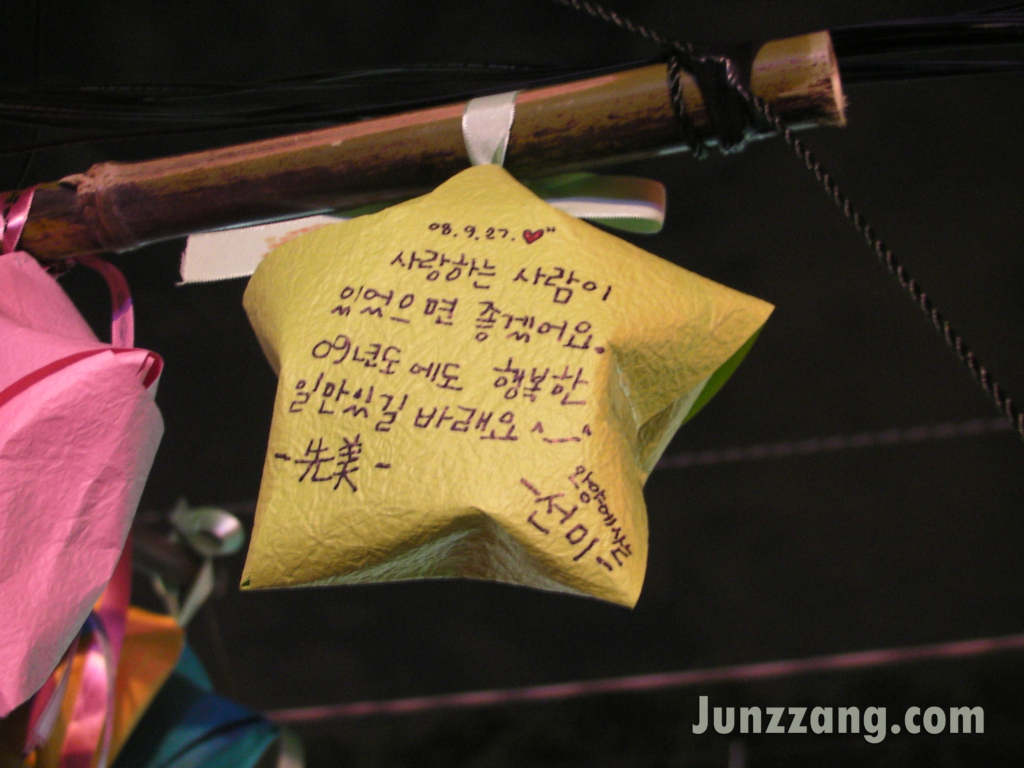 08.9.27.♥"
사랑하는 사람이
있었으면 좋겠어요.
09년도에도 행복한
일만있길 바래요 ^__^
-先美-
안양에사는
-선미-
Junzzang.com